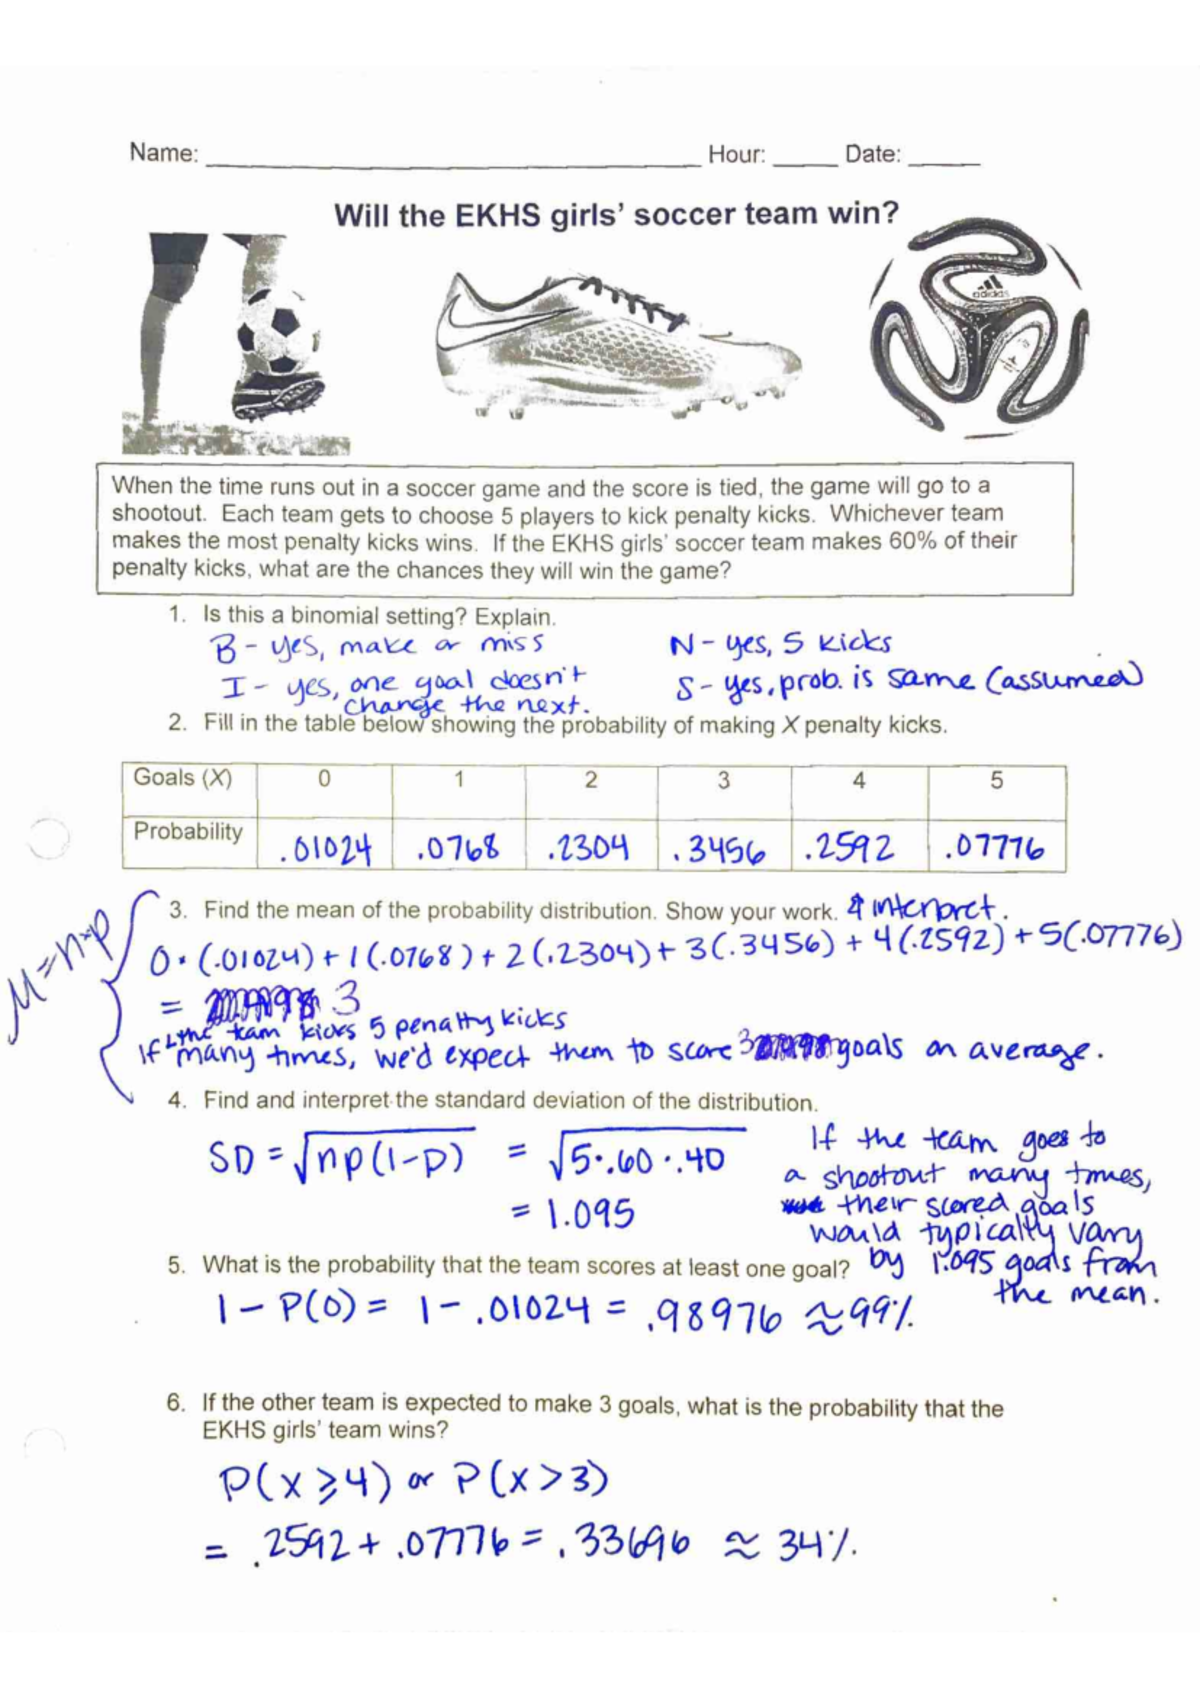 Name: ____ Hour: ____ Date: ____
Will the EKHS girls' soccer team win?
adidas
When the time runs out in a soccer game and the score is tied, the game will go to a
shootout. Each team gets to choose 5 players to kick penalty kicks. Whichever team
makes the most penalty kicks wins. If the EKHS girls' soccer team makes 60% of their
penalty kicks, what are the chances they will win the game?
1. Is this a binomial setting? Explain.
B - yes, make or miss
N - yes, 5 kicks
I - yes, one goal doesn't
change the next.
S - yes, prob. is same (assumed)
2. Fill in the table below showing the probability of making X penalty kicks.
Goals (X) 0 1 2 3 4 5
Probability .01024 .0768 .2304 .3456 .2592 .07776
μ = n·p
3. Find the mean of the probability distribution. Show your work. & interpret.
0·(.01024) + 1(.0768) + 2(.2304) + 3(.3456) + 4(.2592) + 5(.07776)
= 3
the team kicks 5 penalty kicks
If many times, we'd expect them to score 3 goals on average.
4. Find and interpret the standard deviation of the distribution.
SD = √np(1-p) = √5·.60·.40
= 1.095
If the team goes to
a shootout many times,
their scored goals
would typically vary
by 1.095 goals from
the mean.
5. What is the probability that the team scores at least one goal?
1 - P(0) = 1 - .01024 = .98976 ≈ 99%
6. If the other team is expected to make 3 goals, what is the probability that the
EKHS girls' team wins?
P(x ≥ 4) or P(x > 3)
= .2592 + .07776 = .33696 ≈ 34%.